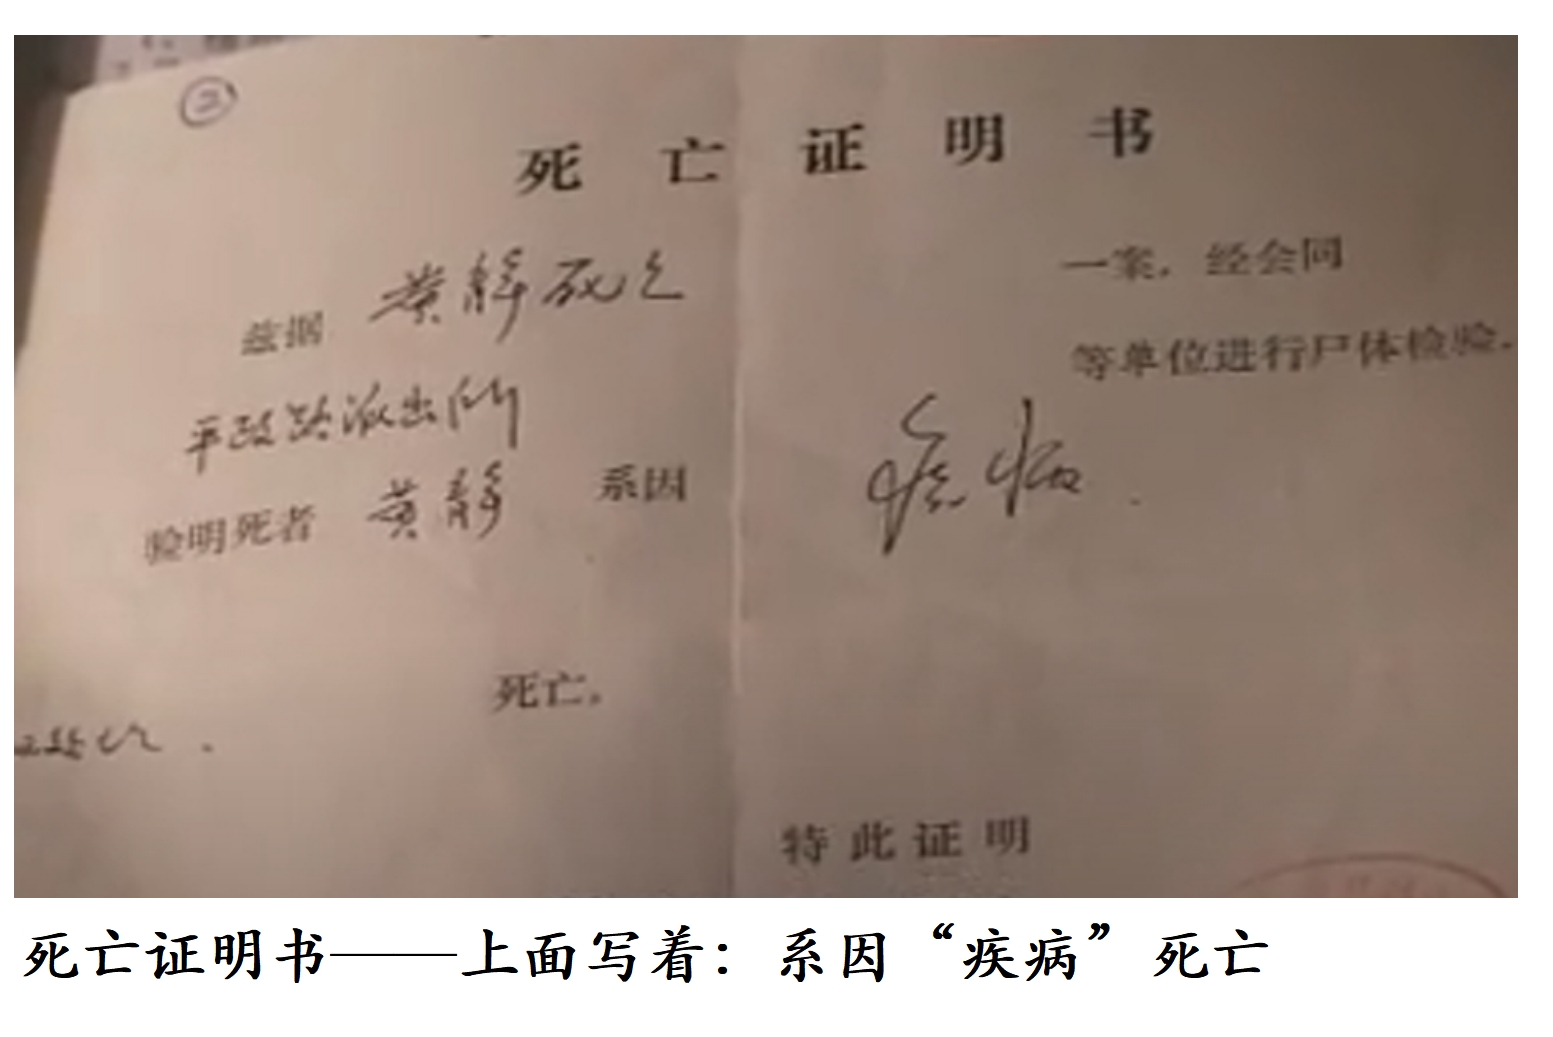 ②
死亡证明书
兹据 黄静死亡 一案，经会同
平政路派出所 等单位进行尸体检验，
验明死者 黄静 系因 疾病
死亡。
特此证明
死亡证明书——上面写着：系因“疾病”死亡